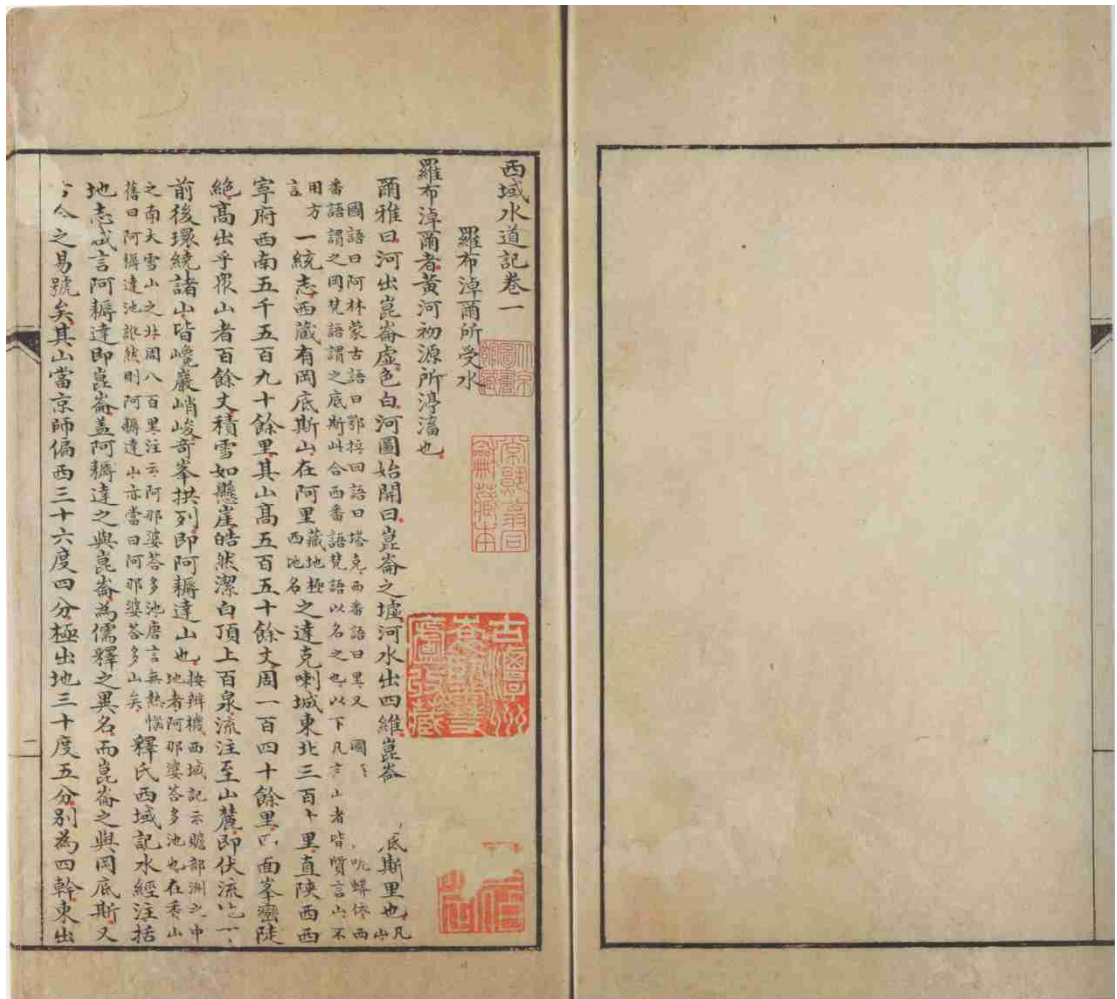 西域水道記卷一
羅布淖爾所受水
羅布淖爾者黃河初源所渟滀也
爾雅曰河出崑崙虛色白河圖始開曰崑崙之墟河水出四維崑崙底斯里也凡山
國語曰阿林蒙古語曰鄂拉回語曰塔克西番語曰里又
番語謂之岡梵語謂之底斯此合西番語梵語以名之也以下凡言山者皆質言山不
用方
言
一統志西藏有岡底斯山在阿里藏地極西地名之達克喇城東北三百十里直陝西西
寧府西南五千五百九十餘里其山高五百五十餘丈周一百四十餘里面峯巒陡
絕高出乎眾山者百餘丈積雪如懸崖皓然潔白頂上百泉流注至山麓即伏流
前後環繞諸山皆巉巖峭峻奇峯拱列即阿耨達山也按辨機西域記云贍部洲之中地者阿那婆荅多池也在香山
之南大雪山之北周八百里注云阿那婆荅多池唐言無熱惱
舊曰阿耨達池訛然則阿耨達山亦當曰阿那婆荅多山矣
釋氏西域記水經注括
地志咸言阿耨達即崑崙蓋阿耨達之與崑崙為儒釋之異名而崑崙之與岡底斯又
古今之易號矣其山當京師偏西三十六度四分極出地三十度五分別為四幹東出